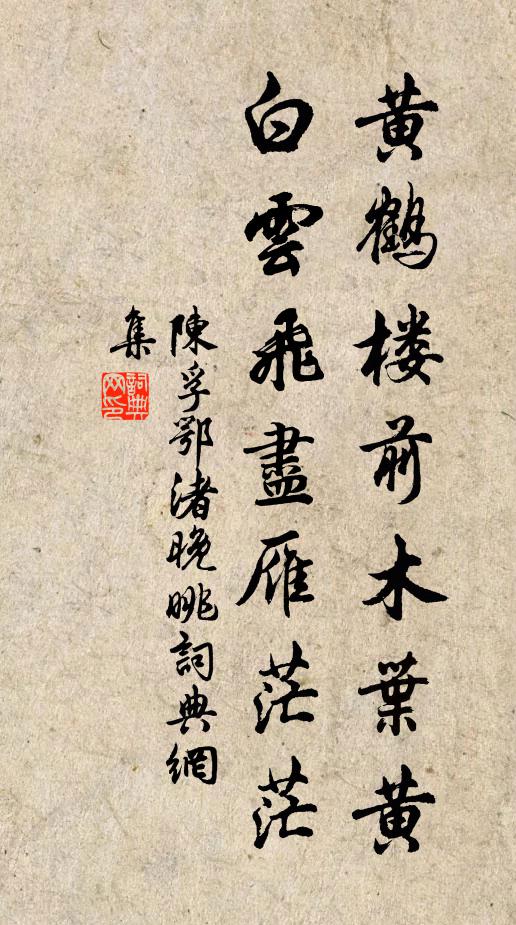 黄鶴楼前木葉黄
白雲飛盡雁茫茫
陳孚鄂渚晚眺詞典網
集
詞典
网印